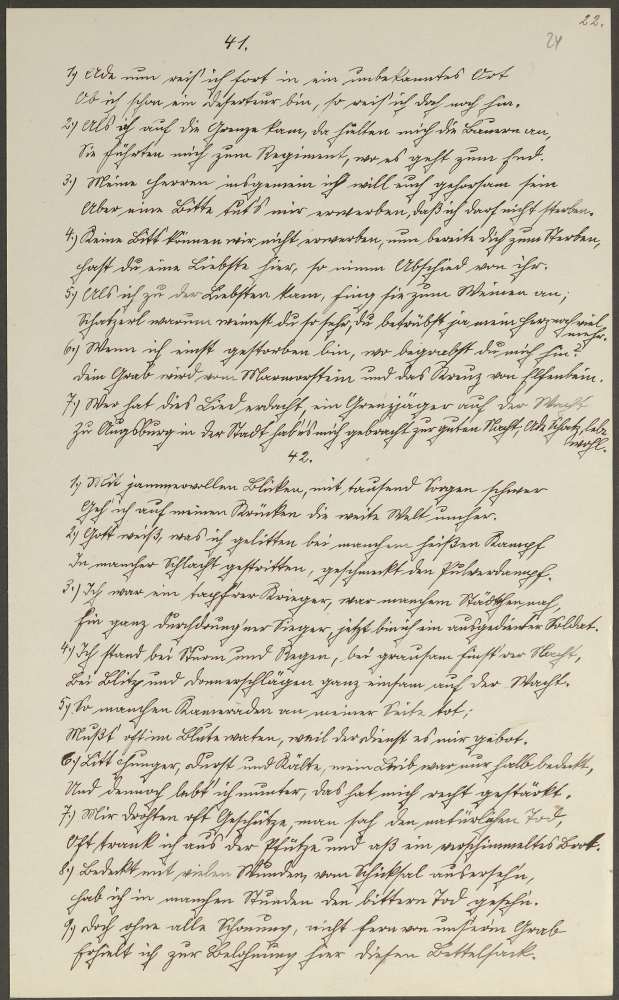 22.
24
41.
1.) Ade nun reis' ich fort in ein unbekanntes Ort
Ob ich schon ein Deserteur bin, so reis' ich doch noch hin.
2.) Als ich auf die Grenze kam, da hielten mich die Bauern an,
Sie führten mich zum Regiment, wo es geht zum End.
3.) Meine Herren insgemein ich will euch gehorsam sein
Aber eine Bitte tut's mir erwerben, daß ich darf nicht sterben.
4.) Keine Bitt können wir nicht erwerben, nun bereite dich zum Sterben,
Hast du eine Liebste hier, so nimm Abschied von ihr.
5.) Als ich zu der Liebsten kam, fing sie zum Weinen an;
Schatzerl warum weinest du so sehr, du betrübst ja mein Herz noch viel
mehr.
6.) Wenn ich einst gestorben bin, wo begrabst du mich hin?
Dein Grab wird von Marmorstein und das Kreuz von Elfenbein.
7.) Wer hat dies Lied erdacht, ein Grenzjäger auf der Wacht
Zu Augsburg in der Stadt hab's mich gebracht zur guten Nacht; Ade Schatz, lebe
wohl.
42.
1.) Mit jammervollen Blicken, mit tausend Sorgen schwer
Geh' ich auf meinen Krücken die weite Welt umher.
2.) Gott weiß, was ich gelitten bei manchem heißen Kampf
In mancher Schlacht gestritten, geschmeckt den Pulverdampf.
3.) Ich war ein tapf'rer Krieger, war manchem Städtchen nah,
Hin ganz durchdrung'ner Sieger, jetzt bin ich ein ausgedienter Soldat.
4.) Ich stand bei Sturm und Regen, bei grausam finst'rer Nacht,
Bei Blitz und Donnerschlägen ganz einsam auf der Wacht.
5.) So manchen Kameraden an meiner Seite tot;
Mußt' oft im Blute waten, weil der Dienst es mir gebot.
6.) Litt Hunger, Durst und Kälte, mein Leib war nur halb bedeckt,
Und dennoch lebt' ich munter, das hat mich recht gestärkt.
7.) Mir drohten oft Geschütze, man sah den natürlichen Tod,
Oft trank ich aus der Pfütze und aß ein verschimmeltes Brot.
8.) Bedeckt mit vielen Wunden, vom Schicksal ausersehn,
Hab ich in manchen Stunden den bittern Tod geseh'n.
9.) Doch ohne alle Schonung, nicht fern von unserm Grab
Erhielt ich zur Belohnung hier diesen Bettelsack.